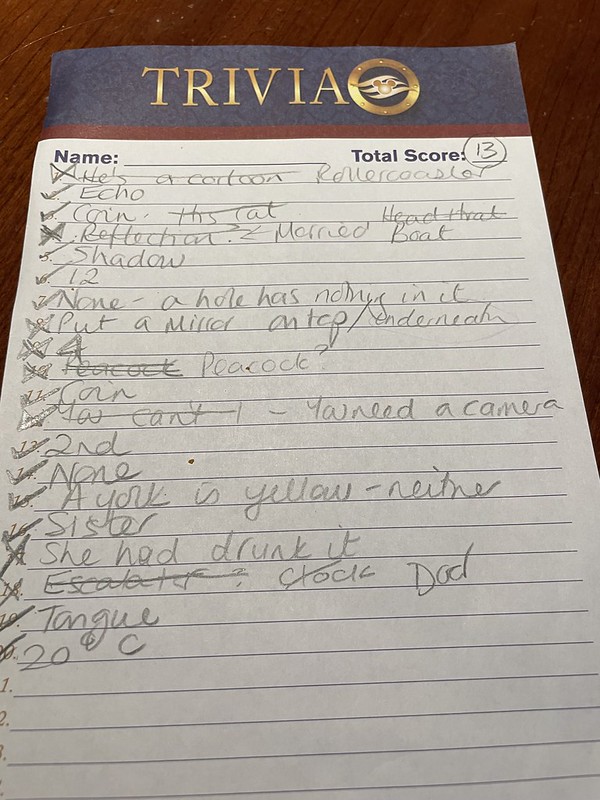 TRIVIA
Name: Total Score: 13
He's a cartoon Rollercoaster
Echo
Coin. This cat Head that
Reflection? Married Boat
5. Shadow
6. 12
7. None - a hole has nothing in it
8. Put a Mirror on top/underneath
4
10. Peacock Peacock?
11. Coin
You can't - You need a camera
13. 2nd
14. None
15. A yolk is yellow - neither
16. Sister
She had drunk it
18. Escalator? Clock Dad
19. Tongue
20. 20° C
1.
2.
3.